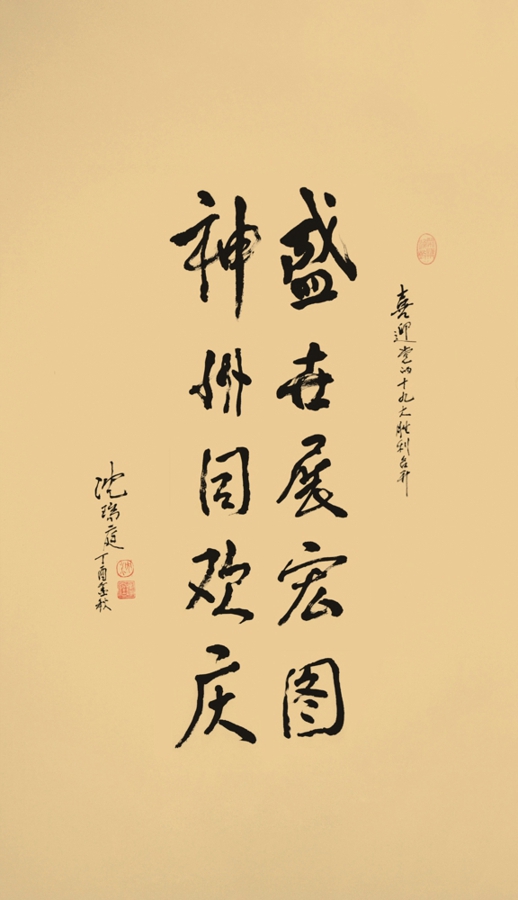 喜迎党的十九大胜利召开
盛世展宏图
神州同欢庆
沈瑞庭 丁酉金秋